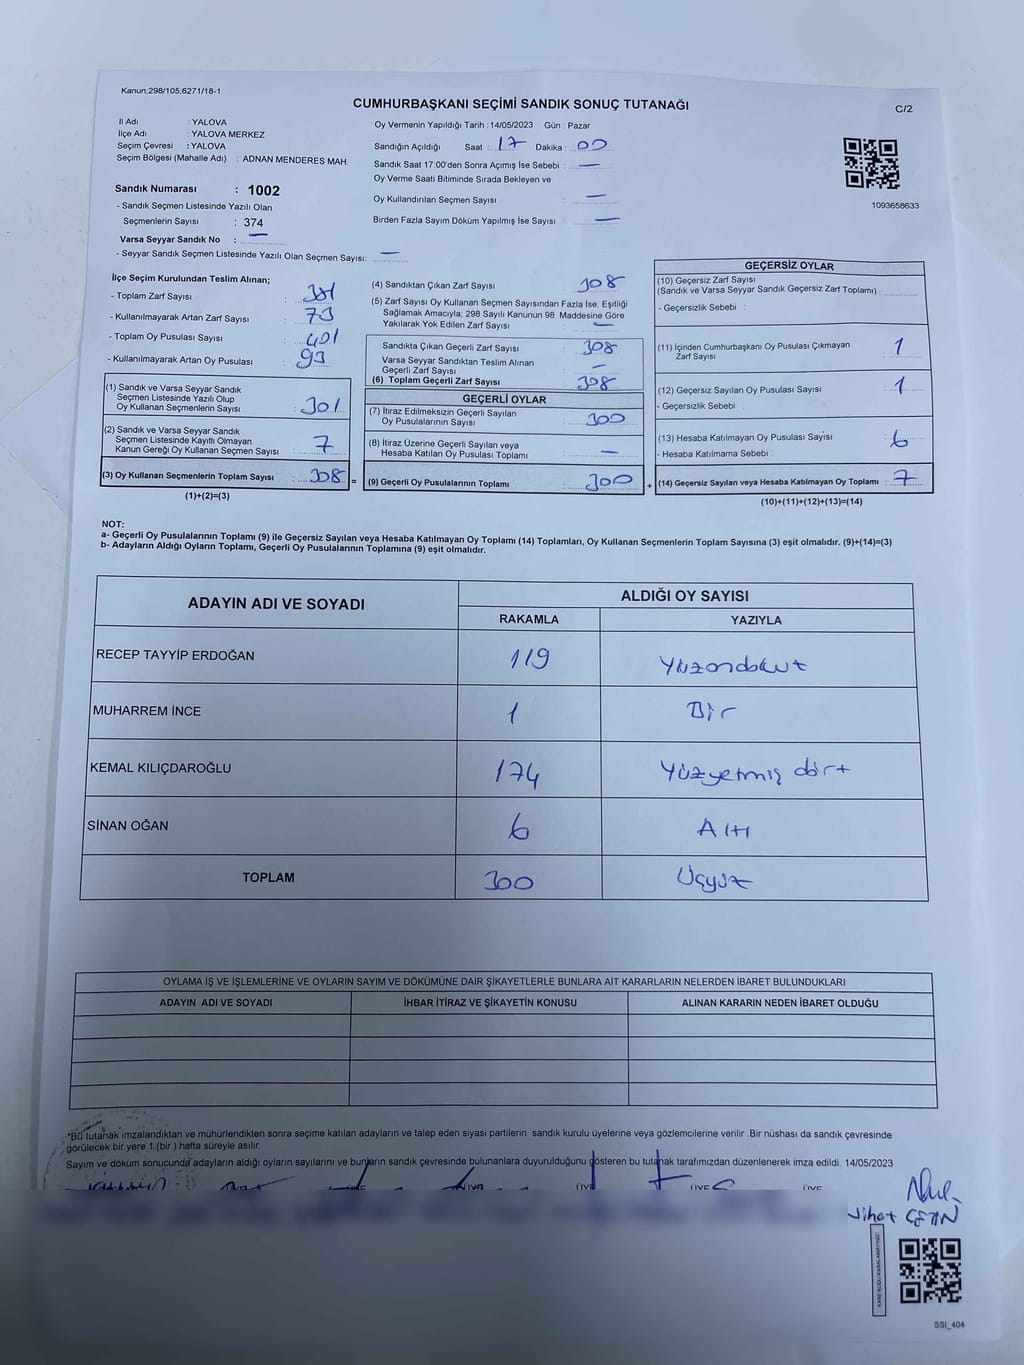 Kanun;298/105,6271/18-1
CUMHURBAŞKANI SEÇİMİ SANDIK SONUÇ TUTANAĞI
C/2
İl Adı : YALOVA
İlçe Adı : YALOVA MERKEZ
Seçim Çevresi : YALOVA
Seçim Bölgesi (Mahalle Adı) : ADNAN MENDERES MAH.
Oy Vermenin Yapıldığı Tarih : 14/05/2023 Gün : Pazar
Sandığın Açıldığı Saat : 17 Dakika : 00
Sandık Saat 17:00'den Sonra Açımış İse Sebebi : —
Oy Verme Saati Bitiminde Sırada Bekleyen ve
Oy Kullandırılan Seçmen Sayısı : —
Birden Fazla Sayım Döküm Yapılmış İse Sayısı : —
1093658633
Sandık Numarası : 1002
- Sandık Seçmen Listesinde Yazılı Olan
Seçmenlerin Sayısı : 374
Varsa Seyyar Sandık No : —
- Seyyar Sandık Seçmen Listesinde Yazılı Olan Seçmen Sayısı: —
İlçe Seçim Kurulundan Teslim Alınan;
- Toplam Zarf Sayısı : 381
- Kullanılmayarak Artan Zarf Sayısı : 73
- Toplam Oy Pusulası Sayısı : 401
- Kullanılmayarak Artan Oy Pusulası : 93
(1) Sandık ve Varsa Seyyar Sandık
Seçmen Listesinde Yazılı Olup
Oy Kullanan Seçmenlerin Sayısı : 301
(2) Sandık ve Varsa Seyyar Sandık
Seçmen Listesinde Kayıtlı Olmayan
Kanun Gereği Oy Kullanan Seçmen Sayısı : 7
(3) Oy Kullanan Seçmenlerin Toplam Sayısı : 308 =
(1)+(2)=(3)
(4) Sandıktan Çıkan Zarf Sayısı : 308
(5) Zarf Sayısı Oy Kullanan Seçmen Sayısından Fazla İse, Eşitliği
Sağlamak Amacıyla; 298 Sayılı Kanunun 98. Maddesine Göre
Yakılarak Yok Edilen Zarf Sayısı : —
Sandıkta Çıkan Geçerli Zarf Sayısı : 308
Varsa Seyyar Sandıktan Teslim Alınan
Geçerli Zarf Sayısı : —
(6) Toplam Geçerli Zarf Sayısı : 308
GEÇERLİ OYLAR
(7) İtiraz Edilmeksizin Geçerli Sayılan
Oy Pusulalarının Sayısı : 300
(8) İtiraz Üzerine Geçerli Sayılan veya
Hesaba Katılan Oy Pusulası Toplamı : —
(9) Geçerli Oy Pusulalarının Toplamı : 300 +
GEÇERSİZ OYLAR
(10) Geçersiz Zarf Sayısı
(Sandık ve Varsa Seyyar Sandık Geçersiz Zarf Toplamı) :
- Geçersizlik Sebebi :
(11) İçinden Cumhurbaşkanı Oy Pusulası Çıkmayan
Zarf Sayısı : 1
(12) Geçersiz Sayılan Oy Pusulası Sayısı : 1
- Geçersizlik Sebebi
(13) Hesaba Katılmayan Oy Pusulası Sayısı : 6
- Hesaba Katılmama Sebebi :
(14) Geçersiz Sayılan veya Hesaba Katılmayan Oy Toplamı : 7
(10)+(11)+(12)+(13)=(14)
NOT:
a- Geçerli Oy Pusulalarının Toplamı (9) ile Geçersiz Sayılan veya Hesaba Katılmayan Oy Toplamı (14) Toplamları, Oy Kullanan Seçmenlerin Toplam Sayısına (3) eşit olmalıdır. (9)+(14)=(3)
b- Adayların Aldığı Oyların Toplamı, Geçerli Oy Pusulalarının Toplamına (9) eşit olmalıdır.
ADAYIN ADI VE SOYADI ALDIĞI OY SAYISI
RAKAMLA YAZIYLA
RECEP TAYYİP ERDOĞAN 119 Yüzondokuz
MUHARREM İNCE 1 Bir
KEMAL KILIÇDAROĞLU 174 Yüzyetmiş dört
SİNAN OĞAN 6 Altı
TOPLAM 300 Üçyüz
OYLAMA İŞ VE İŞLEMLERİNE VE OYLARIN SAYIM VE DÖKÜMÜNE DAİR ŞİKAYETLERLE BUNLARA AİT KARARLARIN NELERDEN İBARET BULUNDUKLARI
ADAYIN ADI VE SOYADI İHBAR İTİRAZ VE ŞİKAYETİN KONUSU ALINAN KARARIN NEDEN İBARET OLDUĞU
*Bu tutanak imzalandıktan ve mühürlendikten sonra seçime katılan adayların ve talep eden siyasi partilerin sandık kurulu üyelerine veya gözlemcilerine verilir .Bir nüshası da sandık çevresinde
görülecek bir yere 1 (bir ) hafta süreyle asılır.
Sayım ve döküm sonucunda adayların aldığı oyların sayılarını ve bunların sandık çevresinde bulunanlara duyurulduğunu gösteren bu tutanak tarafımızdan düzenlenerek imza edildi. 14/05/2023
ÜYE ÜYE ÜYE
SSI_404